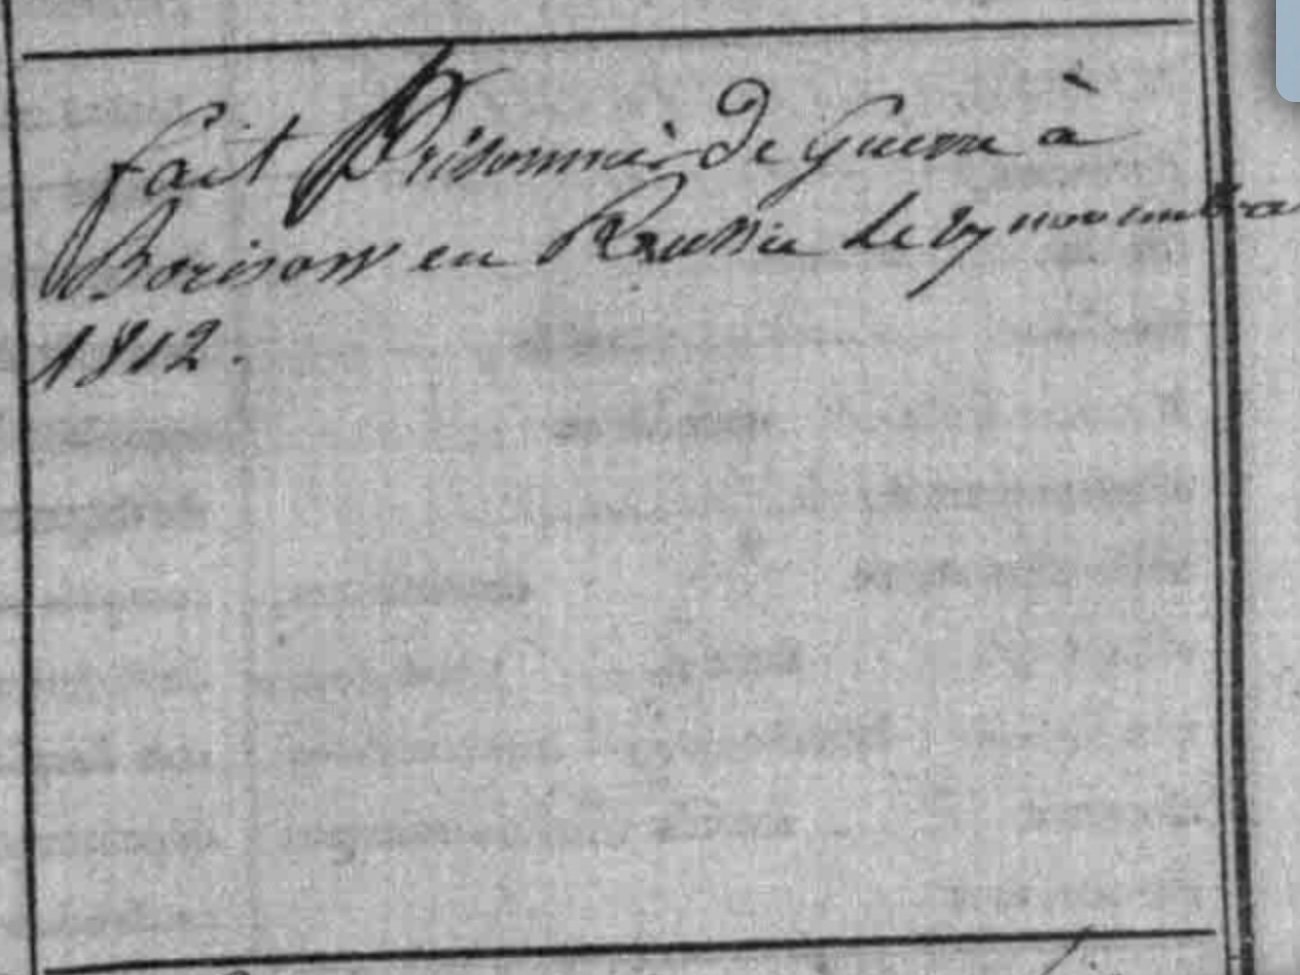 fait Prisonnier de Guerre à
Borisow en Russie le 27 novembre
1812.